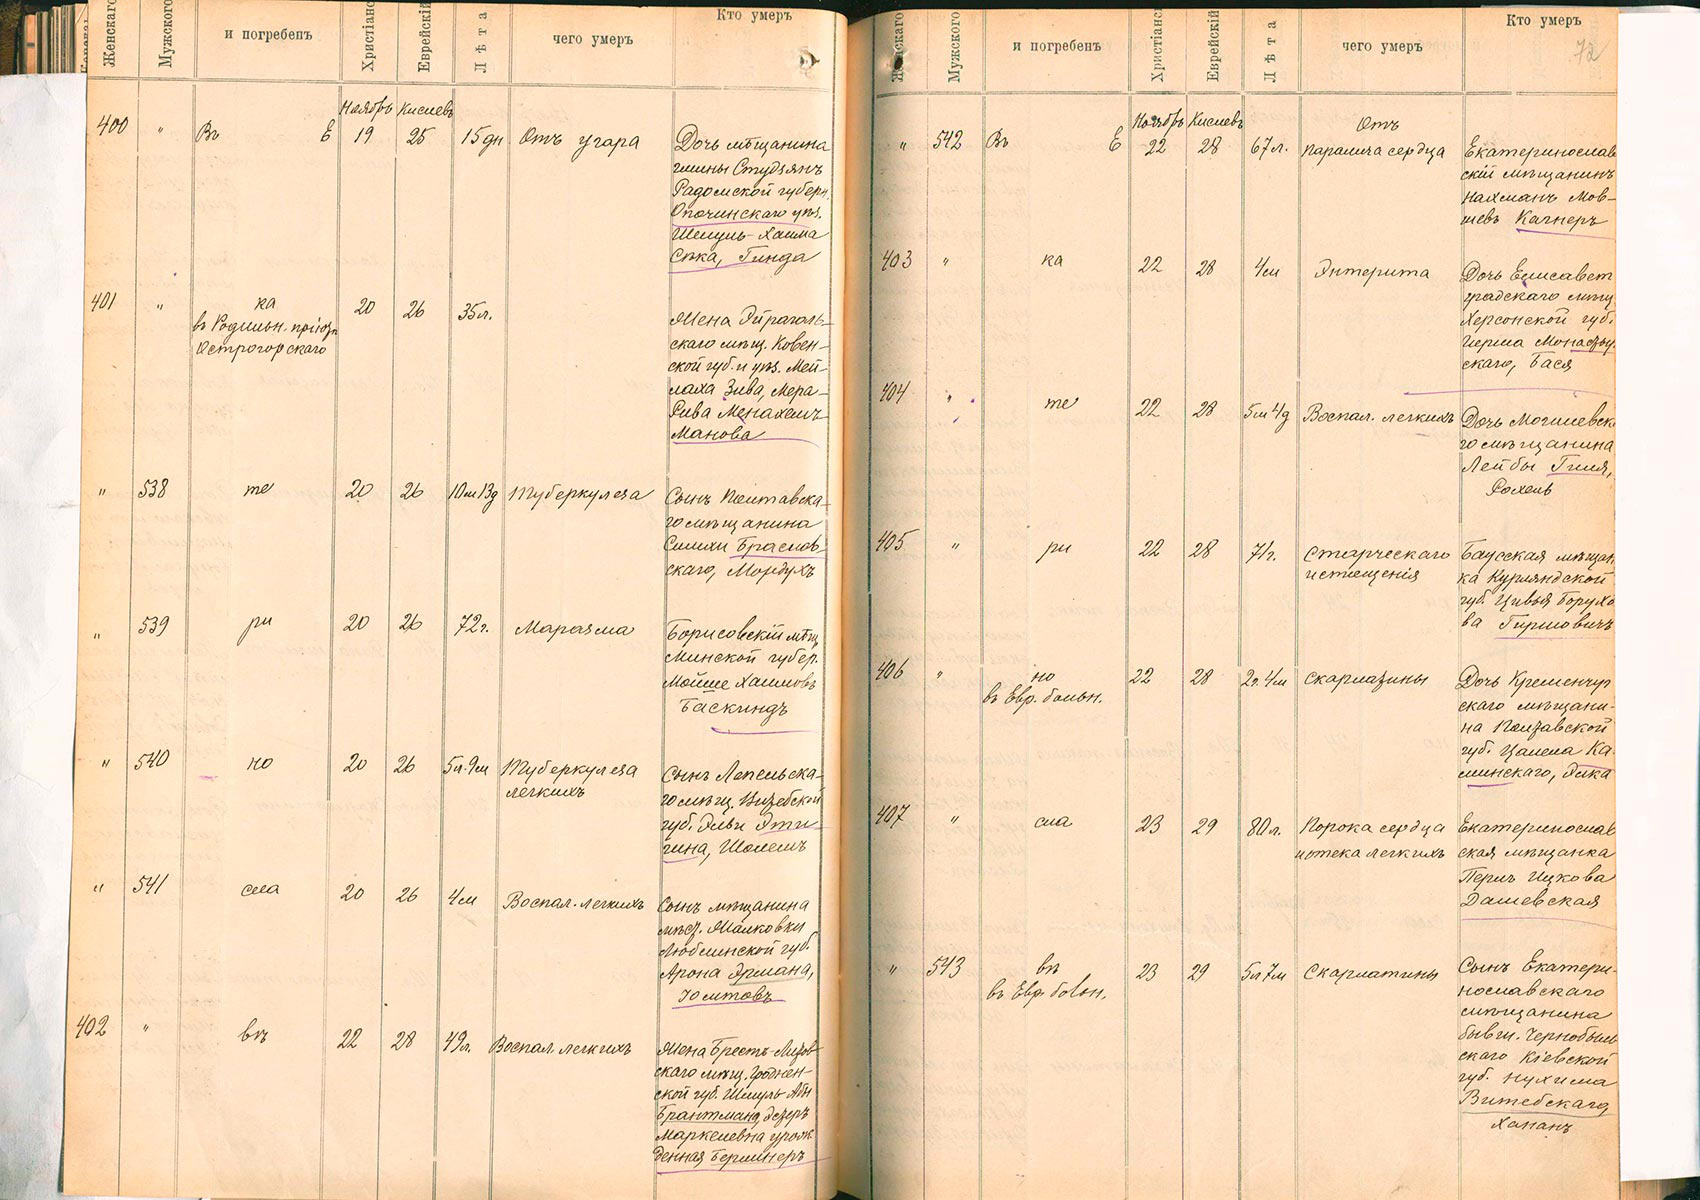 Женскаго
Мужского
и погребенъ
Христіанс
Еврейскій
Лѣта
чего умеръ
Кто умеръ
Ноябрь Кислевъ
400 " Въ Е 19 25 15 дн Отъ угара
Дочь мѣщанина
гмины Студзянъ
Радомской губерн.
Опочинскаго уѣз.
Шмуль-Хаима
Сѣка, Гинда
401 " ка 20 26 35 л.
въ Родильн. пріютѣ
Острогорскаго
Жена Эйраголь-
скаго мѣщ. Ковен-
ской губ. и уѣз. Мей-
лаха Зива, Мера-
Рива Менахемъ
Манова
" 538 те 20 26 10 м 13 д Туберкулеза
Сынъ Полтавска-
го мѣщанина
Симхи Браслав-
скаго, Мордухъ
" 539 ри 20 26 72 г. Маразма
Борисовскій мѣщ.
Минской губер.
Мойше Хаимовъ
Баскиндъ
" 540 но 20 26 5 л. 9 м Туберкулеза
легкихъ
Сынъ Лепельска-
го мѣщ. Витебской
губ. Эльи Эти-
гина, Шолемъ
" 541 сла 20 26 4 м Воспал. легкихъ
Сынъ мѣщанина
мѣст. Жолковки
Люблинской губ.
Арона Эрмана,
Юмтовъ
402 " въ 22 28 49 л. Воспал. легкихъ
Жена Брестъ-Литов
скаго мѣщ. Гроднен-
ской губ. Шмуль
Брантмана, Эстеръ
Маркелевна урож
денная Берлинеръ
Женскаго
Мужского
и погребенъ
Христіанс
Еврейскій
Лѣта
чего умеръ
Кто умеръ
72
Ноябрь Кислевъ
" 542 Въ Е 22 28 67 л. Отъ
паралича сердца
Екатеринослав
скій мѣщанинъ
Нахманъ Мов-
шевъ Качнеръ
403 " ка 22 28 4 м Энтерита
Дочь Елисавет
градскаго мѣщ.
Херсонской губ.
Герша Монастыр
скаго, Бася
404 " те 22 28 5 м 4 д Воспал. легкихъ
Дочь Могилевска
го мѣщанина
Лейбы Гиля,
Рохель
405 " ри 22 28 71 г. Старческаго
истощенія
Баусская мѣщан
ка Курляндской
губ. Цивья Борухо
ва Гиршовичъ
406 " но 22 28 2 г. 4 м Скарлатины
въ Евр. больн.
Дочь Кременчуг
скаго мѣщани-
на Полтавской
губ. Цалела Ка-
минскаго, Элка
407 " сла 23 29 80 л. Порока сердца
и отека легкихъ
Екатеринослав
ская мѣщанка
Перль Ицкова
Дашевская
" 543 въ 23 29 5 л 7 м Скарлатины
въ Евр. больн.
Сынъ Екатери-
нославскаго
мѣщанина
бывш. Чернобыль
скаго Кіевской
губ. Нухима
Витебскаго,
Хананъ